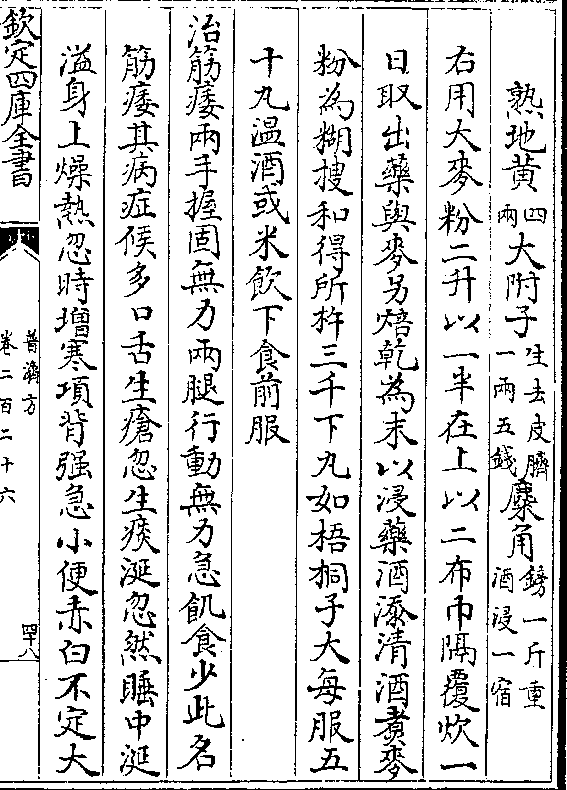 熟地黄四兩大附子生去皮臍一兩五錢麋角鎊一斤重酒浸一宿
右用大麥粉二升以一半在上以二布巾隔覆炊一
日取出藥與麥另焙乾為末以浸藥酒添清酒煑麥
粉為糊搜和得所杵三千下丸如梧桐子大每服五
十丸温酒或米飲下食前服
治筋痿兩手握固無力兩腿行動無力急飢食少此名
筋痿其病症候多口舌生瘡忽生痰涎忽然睡中涎
溢身上燥熱忽時增寒項背强急小便赤白不定大
欽定四庫全書
普濟方
卷二百二十六
四十八